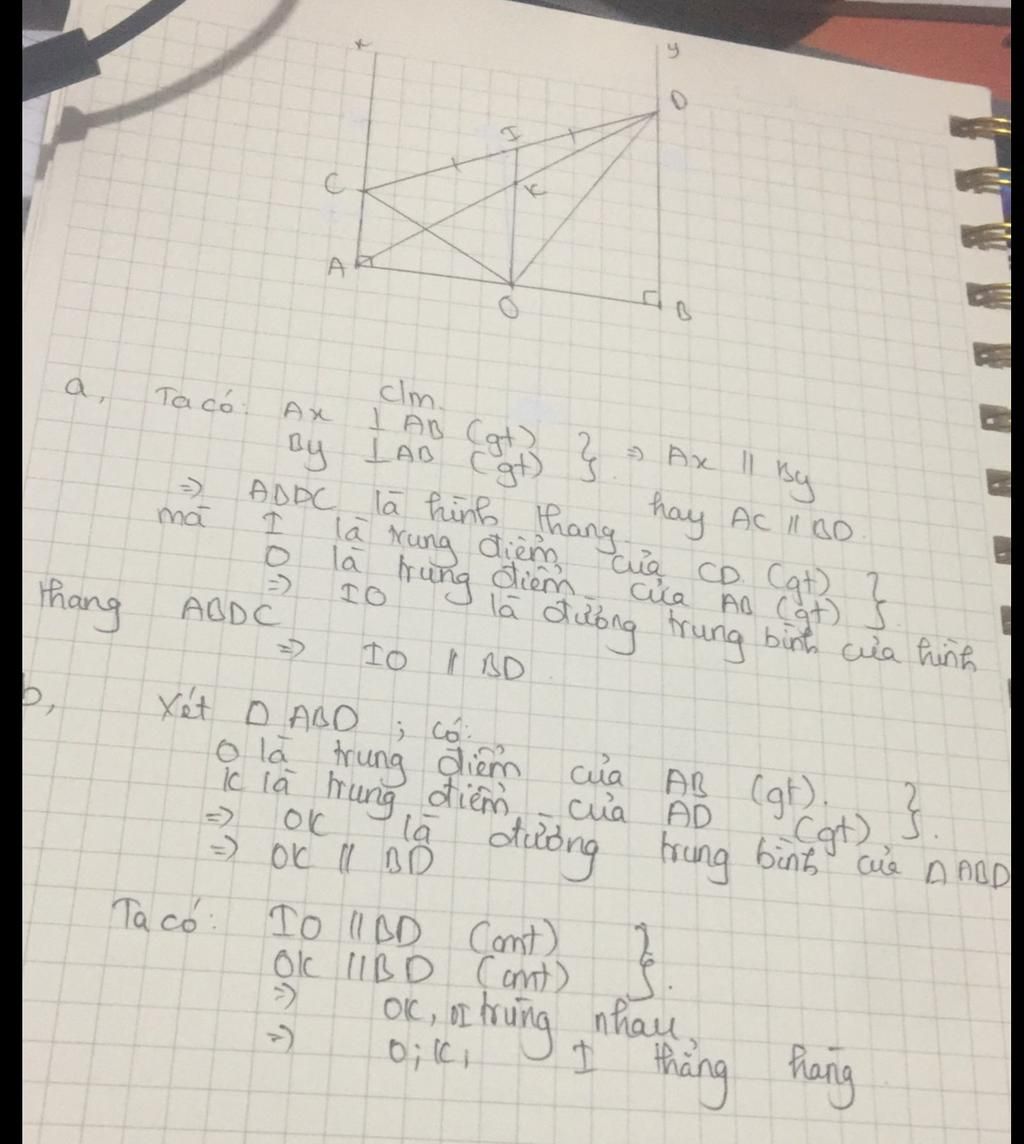 x y
D
I
C K
A
O B
c/m
a, Ta có: Ax ⊥ AB (gt)
By ⊥ AB (gt) } ⇒ Ax // By
hay AC // BD.
⇒ ABDC là hình thang
mà I là trung điểm của CD (gt)
O là trung điểm của AB (gt) }
⇒ IO là đường trung bình của hình
thang ABDC
⇒ IO // BD
b, Xét Δ ABD ; có:
O là trung điểm của AB (gt).
K là trung điểm của AD (gt) }.
⇒ OK là đường trung bình của Δ ABD
⇒ OK // BD
Ta có: IO // BD (cmt)
OK // BD (cmt) }.
⇒ OK, OI trùng nhau
⇒ O; K, I thẳng hàng